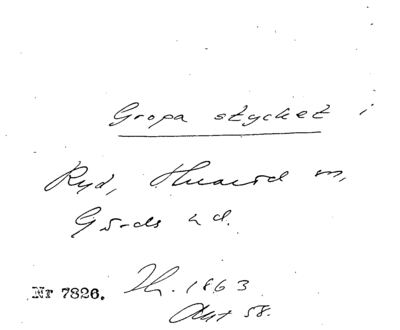 Gropa stycket i
Ryd, Huaröd sn,
Gärds hd.
Nr 7826. Th. 1863
Akt 58.